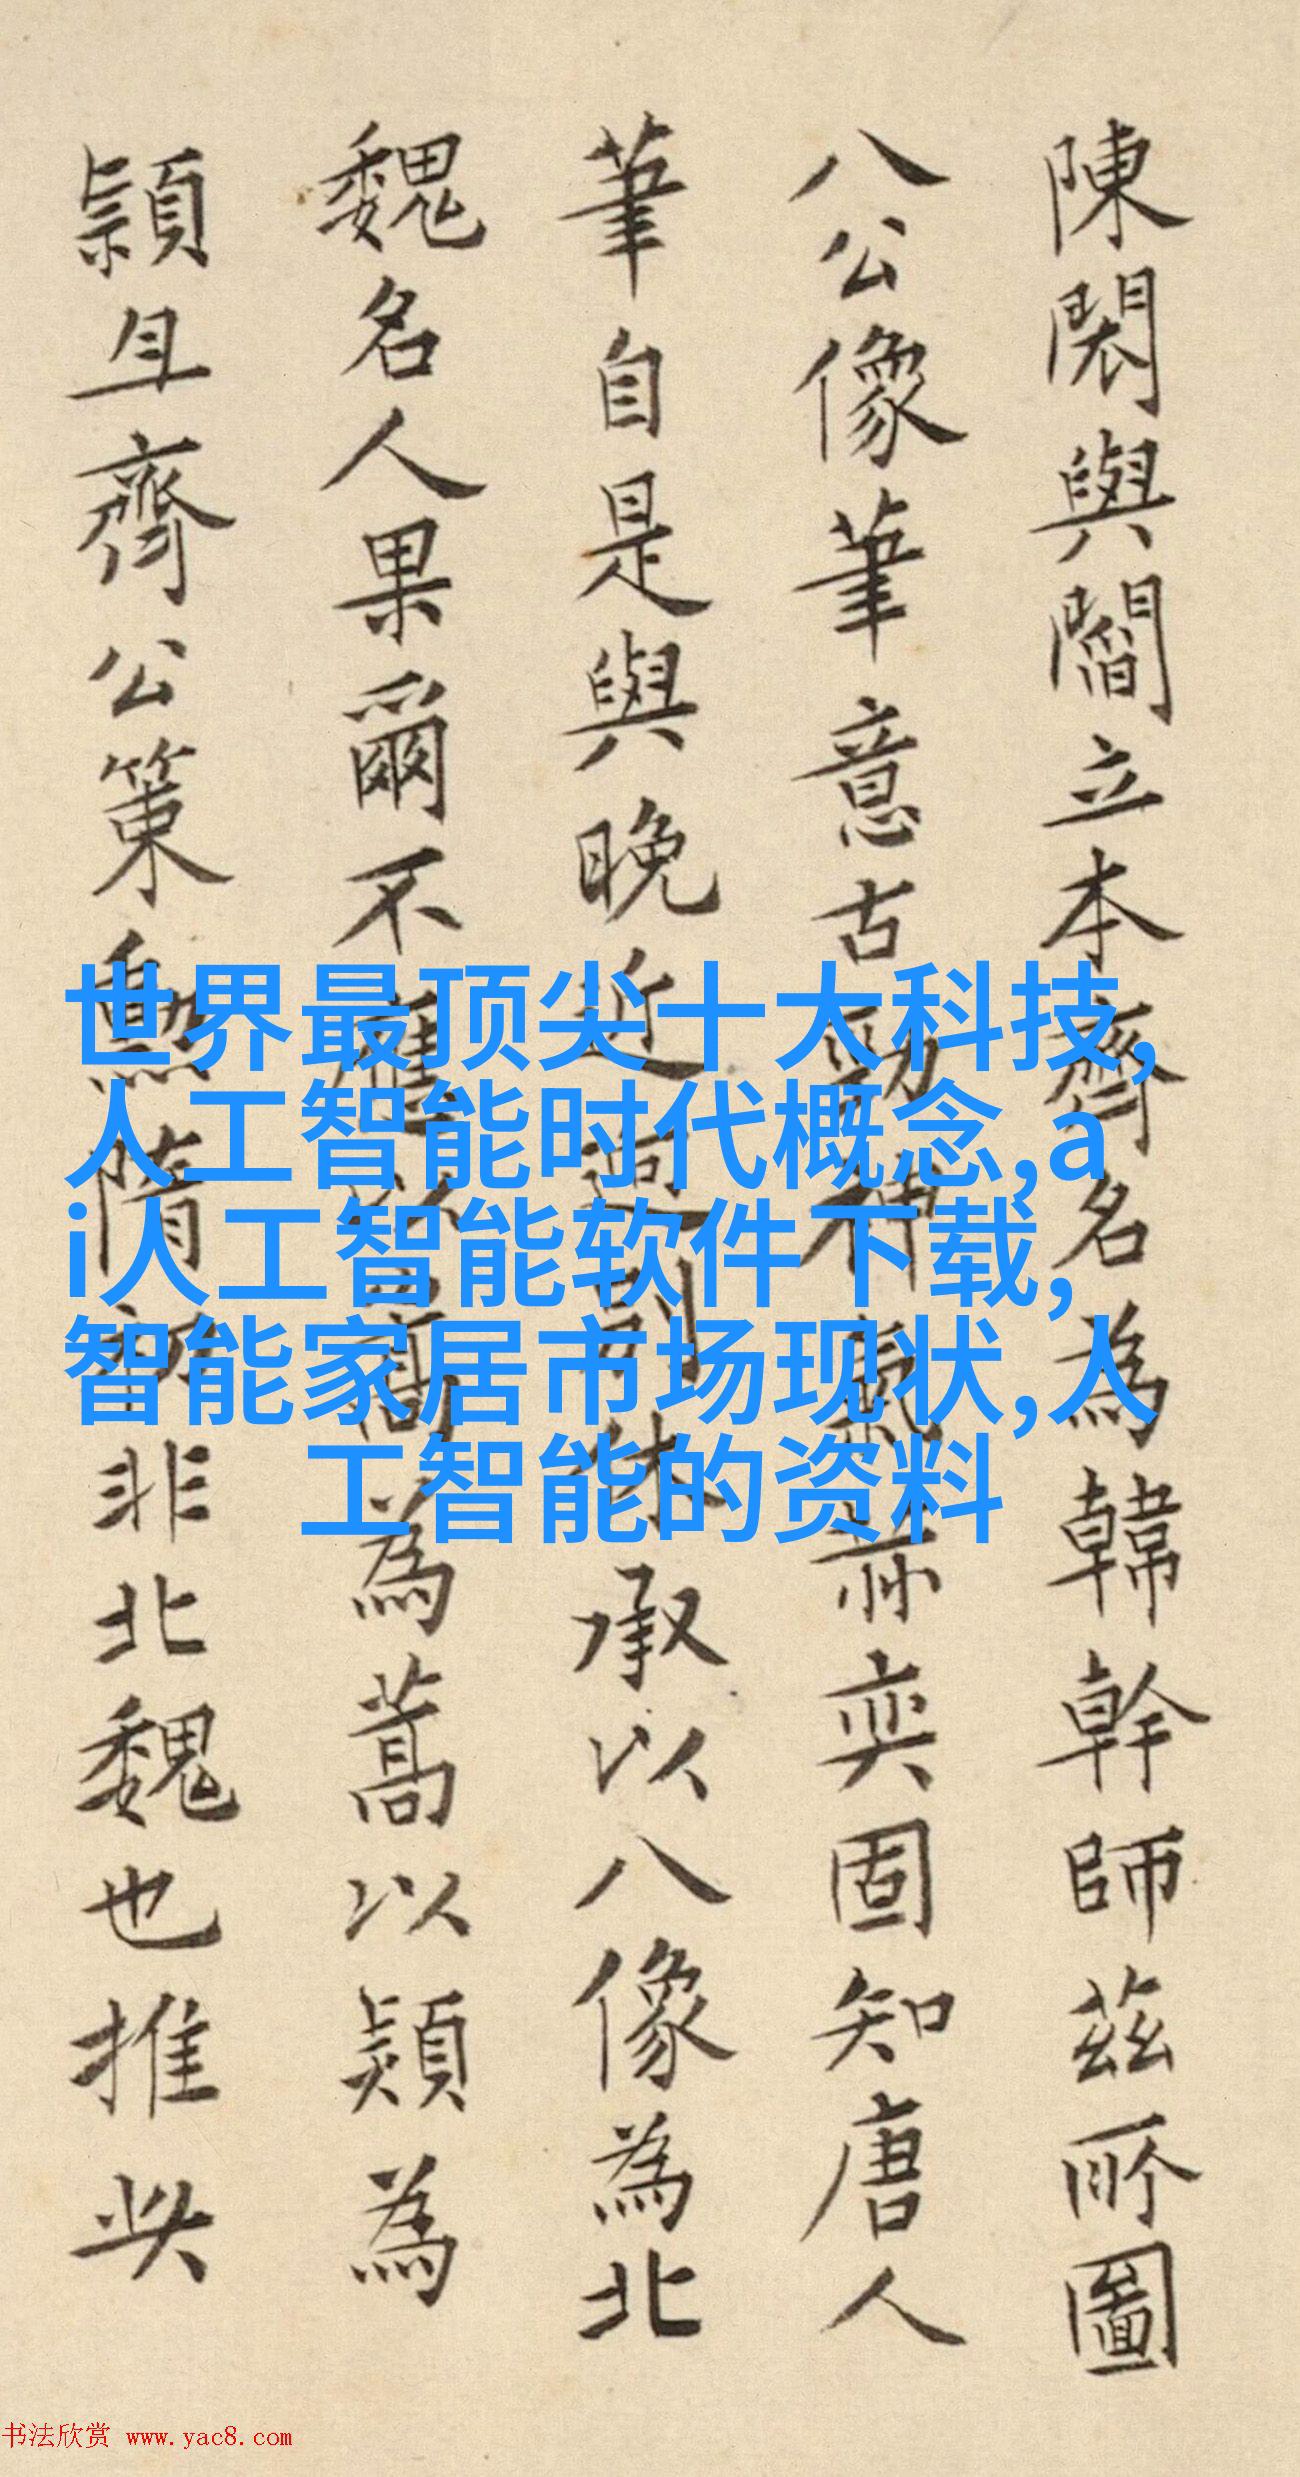 陳閎與閻立本齊名為韓幹師茲所圖
八公像筆意古勁神氣赫奕固知唐人
筆自是與晚近迥別休承以八像為北
魏名人果爾不應以高為蒿以頴為
頴且齊公策勳隋初非北魏也推此
世界最顶尖十大科技,
人工智能时代概念,a
i人工智能软件下载,
智能家居市场现状,人
工智能的资料
书法欣赏 www.yac8.com